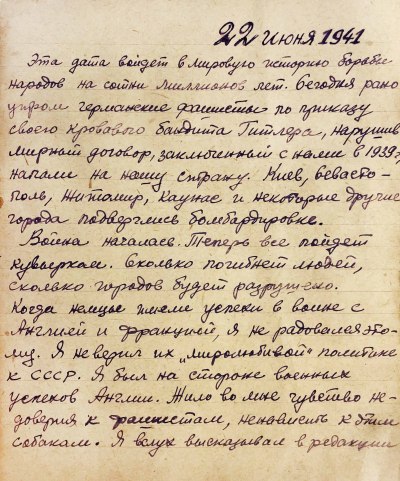 22 июня 1941
Эта дата войдет в мировую историю борьбы
народов на сотни миллионов лет. Сегодня рано
утром германские фашисты по приказу
своего кровавого бандита Гитлера, нарушив
мирный договор, заключенный с нами в 1939 г,
напали на нашу страну. Киев, Севасто-
поль, Житомир, Каунас и некоторые другие
города подверглись бомбардировке.
Война началась. Теперь все пойдет
кувырком. Сколько погибнет людей,
сколько городов будет разрушено.
Когда немцы имели успехи в войне с
Англией и Францией, я не радовался это-
му. Я не верил их „миролюбивой" политике
к СССР. Я был на стороне военных
успехов Англии. Жило во мне чувство не-
доверия к фашистам, ненависть к этим
собакам. Я вслух высказывал в редакции